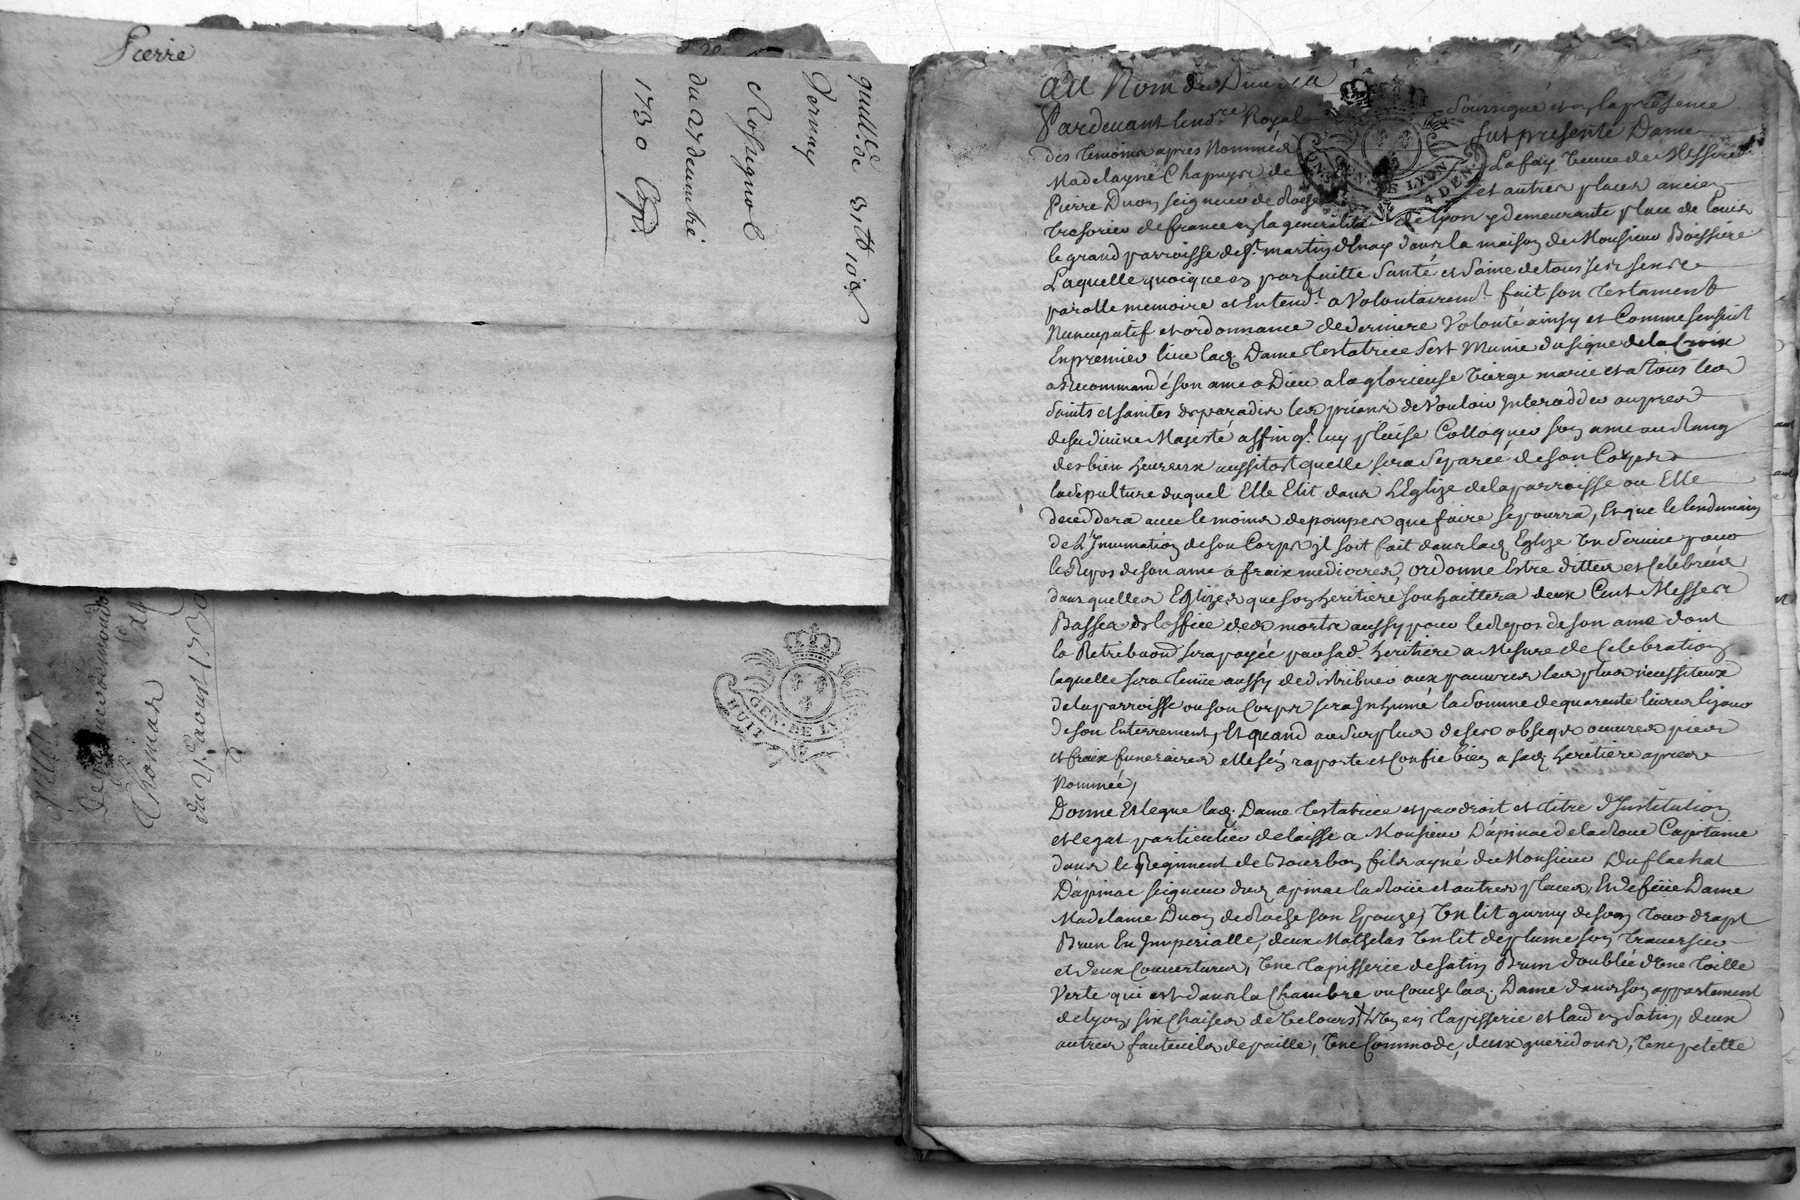 Pierre
quittce de 31tt 10s
Vernay
Rossignol
du 27 decembre
1730
Thomas
du 7e aoust 1730
HUIT
GEN. DE LYON
Au Nom de Dieu
Pardevant le no.re Royal soussigné et en la presence
des temoins apres Nommés fut presente Dame
Madelayne Chapuys de Lafay veuve de Messire
Pierre Duon seigneur de Roche et autres places ancien
tresorier de france en la generalité de Lyon y demeurante place de Louis
le grand parroisse de St. martin d'Enay dans la maison de Monsieur Boissiere
Laquelle quoique en parfaitte santé et saine de tous ses sens
parolle memoire et Entend.t a Volontairem.t fait son testament
Nuncupatif et ordonnance de derniere Volonté ainsy et Comme sensuit
En premier lieu lad. Dame testatrice sest Munie du signe de la Croix
a Recommandé son ame a Dieu a la glorieuse Vierge marie et a tous les
Saints et saintes de paradis les priant de Vouloir Interceddes aupres
de sa divine Majesté affin q.l luy plaise Colloquer son ame au Rang
des bien heureux aussitost quelle sera separée de son Corps
la Sepulture duquel Elle Elit dans L'Eglize de la parroisse ou Elle
deceddera avec le moins de pompes que faire se pourra, Et que le lendemain
de L'Inhumation de son Corps il soit fait dans lad. Eglize Un Service pour
le Repos de son ame a fraix mediocres, ordonne Estre dittes et Célebrées
dans quelles Eglizes que son heritiere souhaittera deux Cent Messes
Basses de loffice des morts aussy pour le Repos de son ame dont
la Retribuon sera payée par sad. heritiere a Mesure de Celebration
laquelle sera tenüe aussy de distribuer aux pauvres les plus necessiteux
de la parroisse ou son Corps sera Inhumé la somme de quarente livres le jour
de son Enterrement, Et quand au surplus de ses obseqs oeuvres pies
et fraix funeraires elle s'en raporte et Confie bien a sad. heritiere apres
Nommée,
Donne Et legue lad. Dame testatrice et par droit et titre d'Institution
et legat particulier delaisse a Monsieur Dapinac de la Roue Capitaine
dans le Regiment de Bourbon fils ayné de Monsieur Duflachat
Dapinac seigneur dud. apinac la Roüe et autres places, Et de feüe Dame
Madelaine Duon de Roche son Epouze, Un lit garny de son tour drapt
Brun En Imperialle, deux Mathelas Un lit de plume son traversier
et deux Couvertures, Une tapisserie de satin Brun doublée d'Une toille
Verte qui est dans la Chambre ou Couche lad. Dame dans son appartement
de Lyon, six Chaises de Velours, en tapisserie et en satin, deux
autres fauteuils de paille, Une Commode, deux gueridons, Une petitte